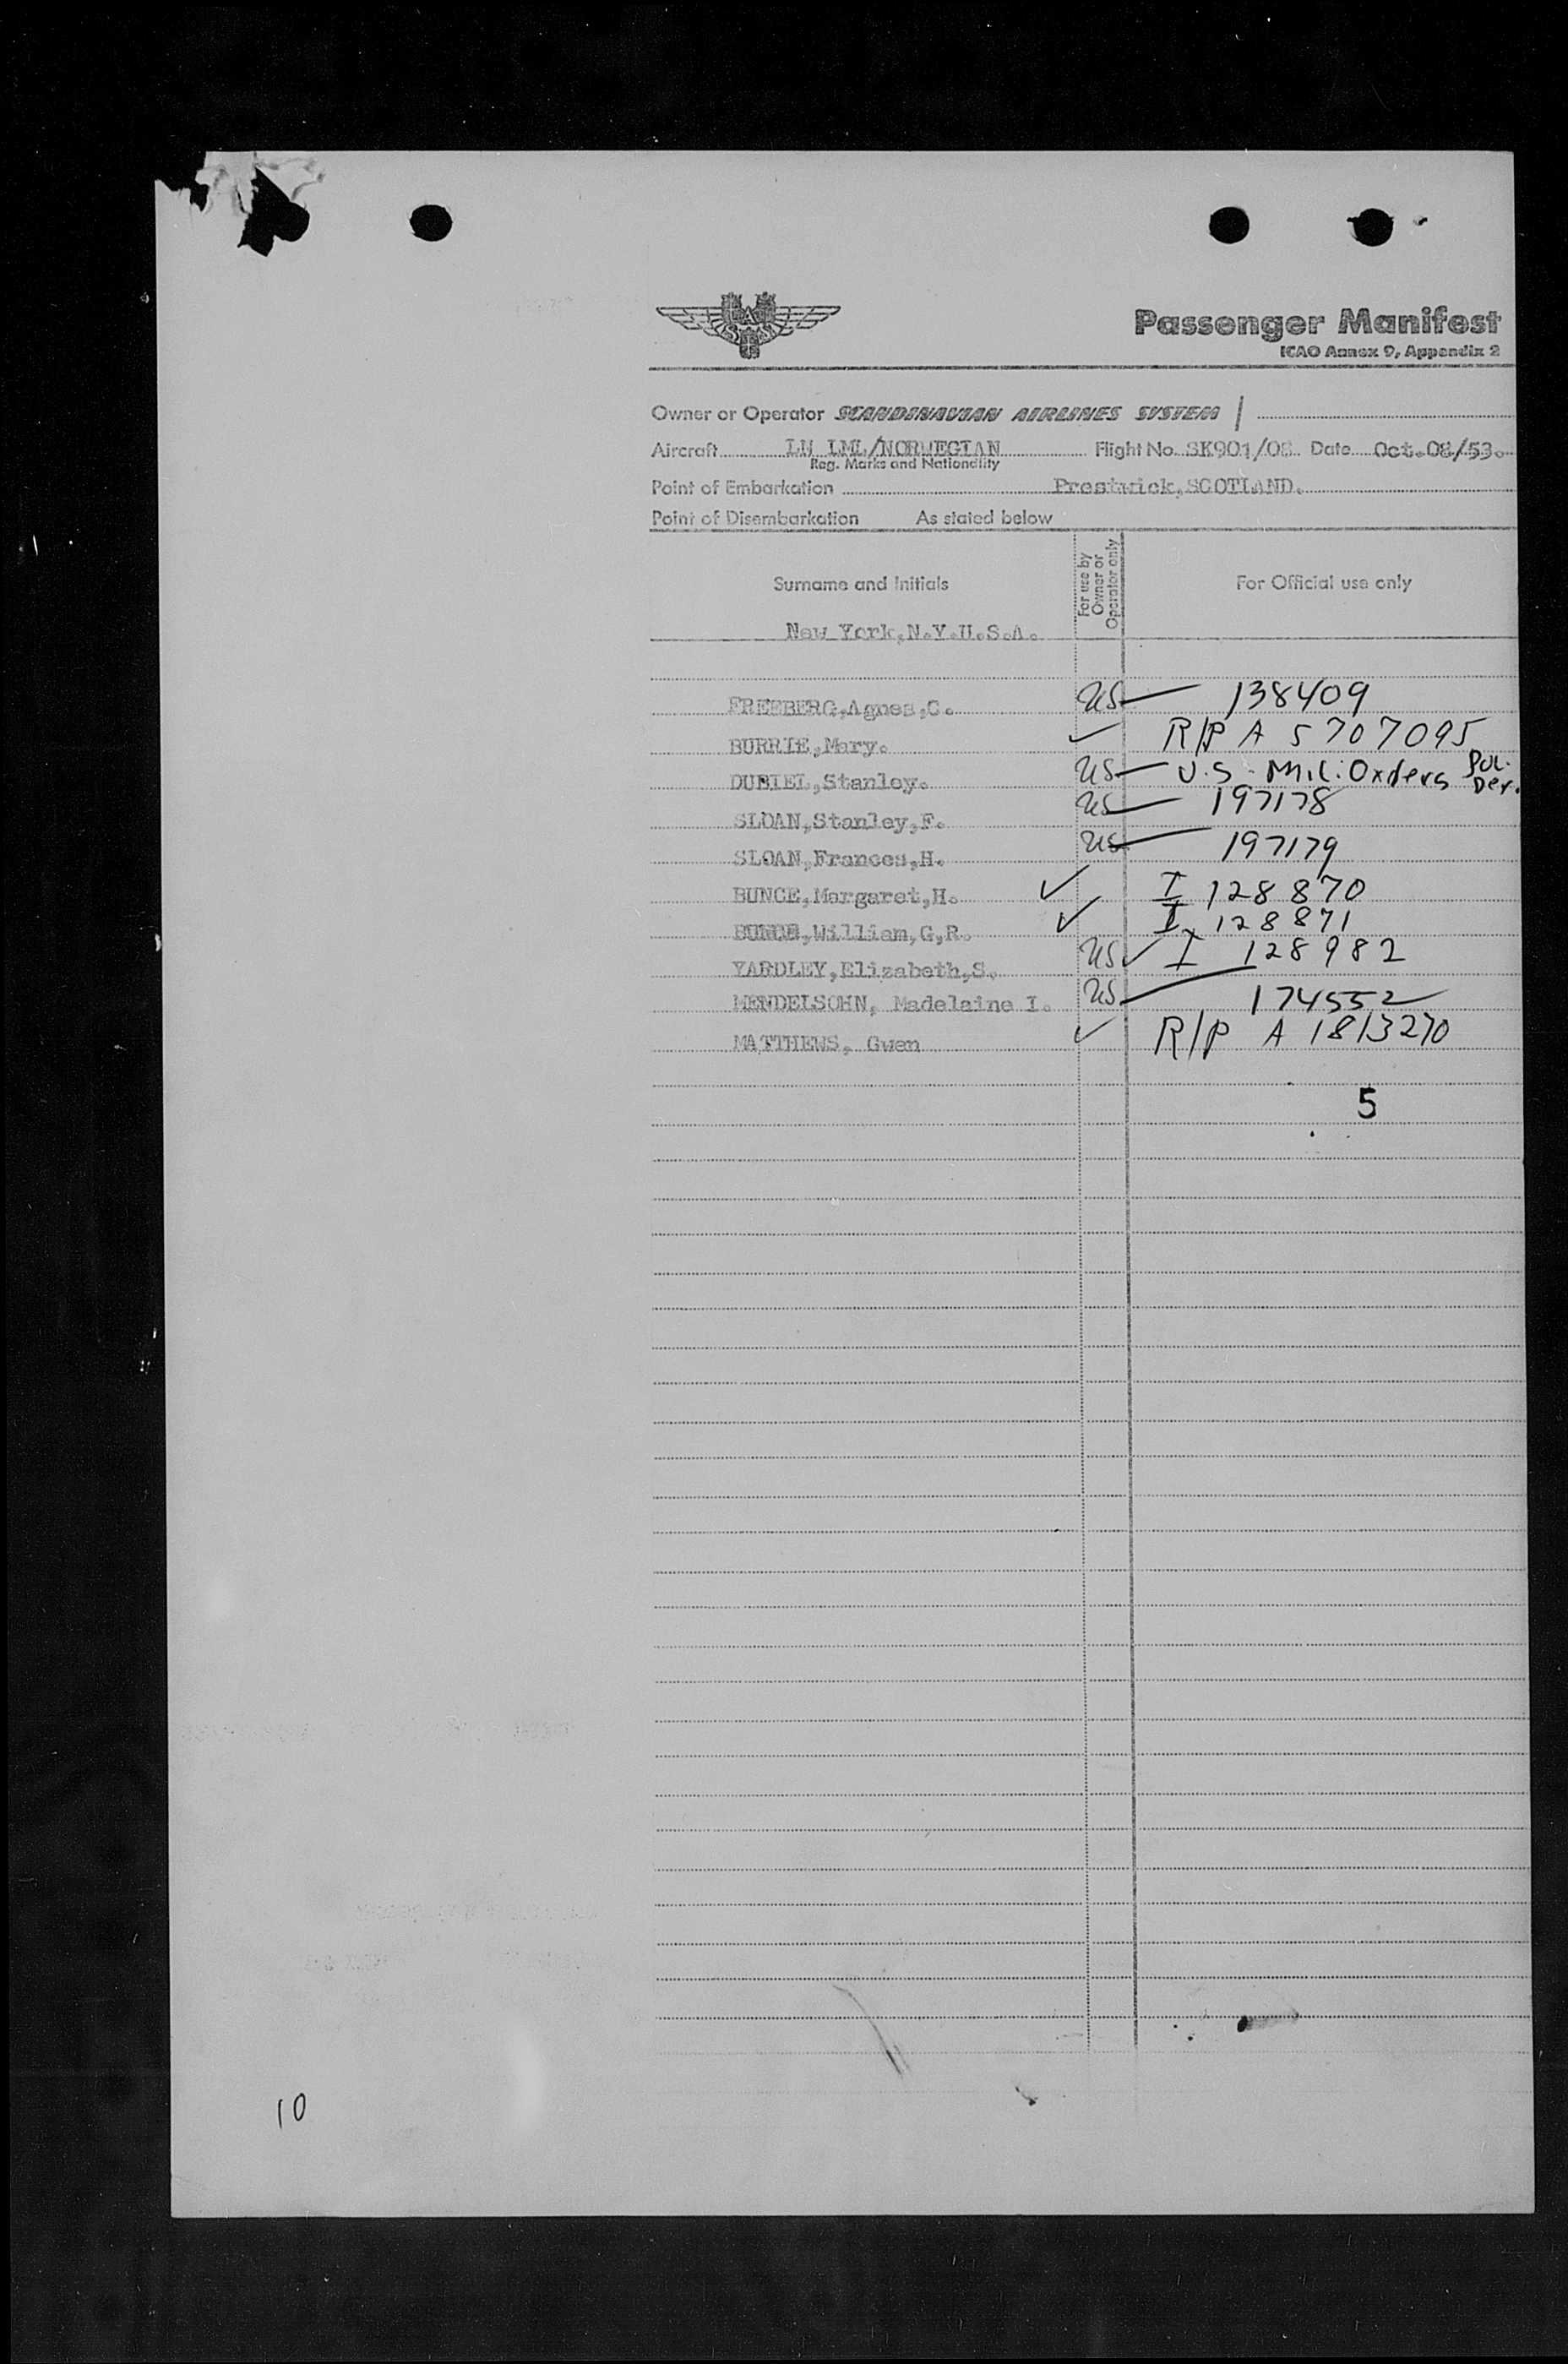 SAS
Passenger Manifest
ICAO Annex 9, Appendix 2
Owner or Operator SCANDINAVIAN AIRLINES SYSTEM /
Aircraft LN LML/NORWEGIAN Flight No. SK901/08 Date Oct.08/53.
Reg. Marks and Nationality
Point of Embarkation Prestwick,SCOTLAND.
Point of Disembarkation As stated below
Surname and Initials For use by Owner or Operator only For Official use only
New York,N.Y.U.S.A.
FREEBERG,Agnes,C. US 138409
BURRIE,Mary. ✓ R/P A 5707095
DUBIEL,Stanley. US U.S. Mil. Orders
SLOAN,Stanley,F. US 197178
SLOAN,Frances,H. US 197179
BUNCE,Margaret,H. ✓ I 128870
BUNCE,William,G,R. ✓ I 128871
YARDLEY,Elizabeth,S. US ✓ I 128982
MENDELSOHN, Madelaine I. US 174552
MATTHEWS, Gwen ✓ R/P A 1813270
5
10